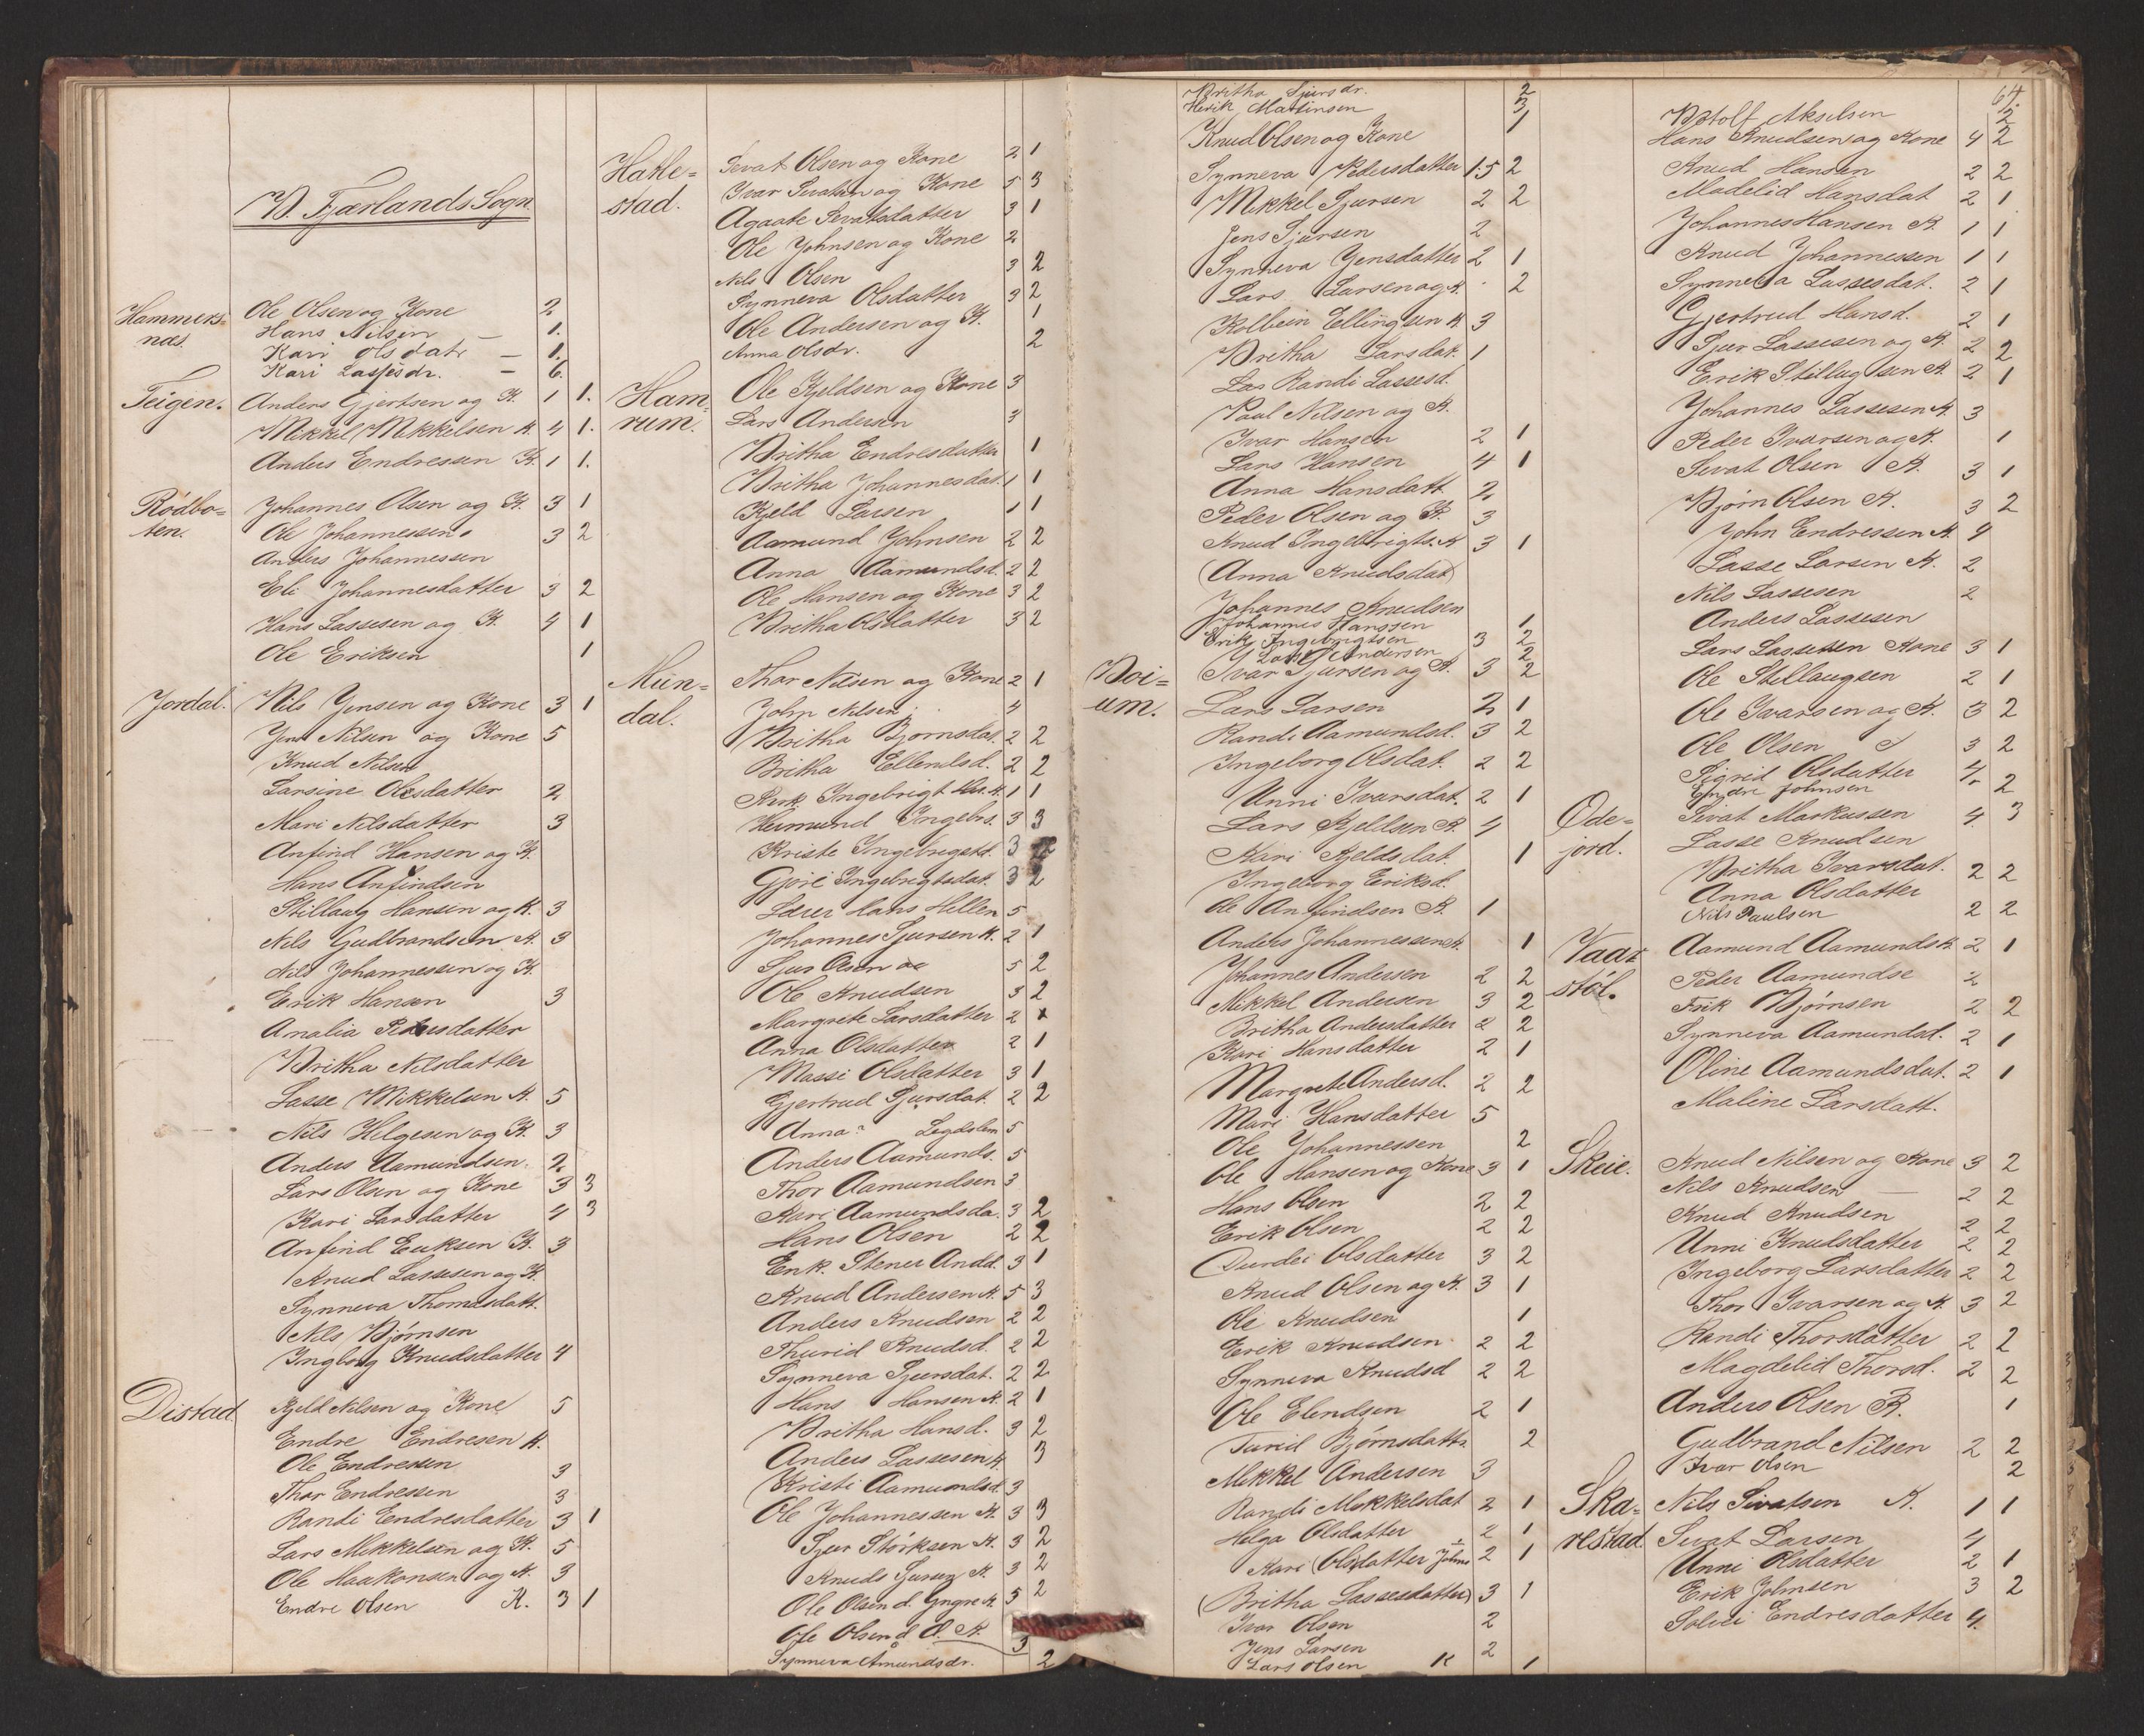 B. Fjærlands Sogn
Hammers-
næs.
Ole Olsen og Kone 2
Hans Nilsen — 1.
Kari Olsdatr — 1.
Kari Lasses dr. — 6.
Teigen.
Anders Gjertsen og K. 1 1.
Mikkel Mikkelsen K. 4 1.
Anders Endressen K. 1 1.
Rødbo-
ten.
Johannes Olsen og K. 3 1
Ole Johannessen. 3 2
Anders Johannessen
Eli Johannesdatter 3 2
Hans Lassesen og K. 4 1
Ole Eriksen 1
Jordal.
Nils Jensen og Kone 3 1
Jens Nilsen og Kone 5
Knud Nilsen
Larsine Olesdatter 2
Mari Nilsdatter 3
Anfind Hansen og K.
Hans Anfindsen
Stillaug Hansen og K. 3
Nils Gudbrandsen K. 3
Nils Johannessen og K.
Erik Hansen 3
Amalia Pedersdatter
Britha Nilsdatter
Lasse Mikkelsen K. 5
Nils Helgesen og K. 3
Anders Aamundsen. 2.
Lars Olsen og Kone 3 3
Kari Larsdatter 4 3
Anfind Eriksen K. 3
Knud Lassesen og K.
Synneva Thomasdatt.
Nils Bjørnsen
Ingborg Knudsdatter 4
Distad
Kjeld Nilsen og Kone 5
Endre Endresen K.
Ole Endressen 3
Thor Endressen 3
Randi Endresdatter 3 1
Lars Mikkelsen og K. 5
Ole Haakonsen og K. 3
Endre Olsen K. 3 1
Hatle-
stad.
Sevat Olsen og Kone 2 1
Ivar Sevatsen og Kone 5 3
Agaate Sevatsdatter 3 1
Ole Johnsen og Kone 2
Nils Olsen 3 2
Synneva Olsdatter 3 2
Ole Andersen og K. 1
Anna Olsdr. 2
Ham-
rum.
Ole Kjeldsen og Kone 3
Lars Andersen 3
Britha Endresdatter 1
Britha Johannesdat. 1 1
Kjeld Larsen 1 1
Aamund Johnsen 2 2
Anna Aamundsd. 2 2
Ole Hansen og Kone 3 2
Britha Olsdatter 3 2
Mun-
dal.
Thor Nilsen og Kone 2 1
John Nilsen 4
Britha Bjørnsdat. 2 2
Britha Ellendsd. 2 2
Ingebrigt K. 1 1
Heimund Ingebrs. 3 3
Kriste Ingebrigtsd. 3
Gjøri Ingebrigtsdat. 3 2
Lærer Hans Hellen 5
Johannes Sjursen K. 2 1
Sjur Olsen 5 2
Ole Knudsen 3 2
Margrete Larsdatter 2 1
Anna Olsdatter 2 1
Massi Olsdatter 3 1
Gjertrud Sjursdat. 2 2
Anna Legdslem 5
Anders Aamunds. 5
Thor Aamundsen 3
Kari Aamundsda. 3 2
Hans Olsen 2 2
Enk. Stener Andd. 3 1
Knud Andersen K. 5 3
Anders Knudsen 2 2
Thurid Knudsd. 2 2
Synneva Sjursdat. 2 2
Hans Hansen K. 2 1
Britha Hansd. 3 2
Anders Lassesen K 3
Kristi Aamundsd. 3
Ole Johannessen K. 3 3
Sjur Størksen K. 3 2
Knuds Sjursen K. 3 2
Ole Olsen d. Yngre K 5 2
Ole Olsen d. Æ. K. 3
Synneva Amundsdr. 2
Britha Sjursdr. 2
Henrik Martinsen 3
Knud Olsen og Kone 1
Synneva Pedersdatter 1.5 2
Mikkel Sjursen 2 2
Jens Sjursen 2
Synneva Jensdatter 2 1
Lars Larsen og K. 2
Kolbein Ellingsen K. 3
Britha Larsdat. 1
Las Randi Lassesd.
Paul Nilsen og K.
Ivar Hansen 2 1
Lars Hansen 4 1
Anna Hansdatt 2
Peder Olsen og K. 3
Knud Ingebrigts. K 3 1
(Anna Knudsdat)
Johannes Knudsen
Johannes Hanssen 1
Erik Ingebrigtsen 3 2
Lars Andersen 2
Boi-
um.
Ivar Sjursen og K. 3 2
Lars Larsen 2 1
Randi Aamundsd. 3 2
Ingeborg Olsdat. 2 2
Unni Ivarsdat. 2 1
Lars Kjeldsen K. 4
Kari Kjeldsdat. 1
Ingeborg Eriksd.
Ole Anfindsen K. 1
Anders Johannessen K. 1
Johannes Andersen 2 2
Mikkel Andersen 3 2
Britha Andersdatter 2 2
Kari Hansdatter 2 1
Margrete Andersd. 2 2
Mari Hansdatter 5
Ole Johannessen 2
Ole Hansen og Kone 3 1
Hans Olsen 2 2
Erik Olsen 2 2
Durdei Olsdatter 3 2
Knud Olsen og K. 3 1
Ole Knudsen 1
Erik Knudsen 2 2
Synneva Knudsd 2 2
Ole Elendsen 2 1
Turid Bjørnsdattr. 2
Mikkel Andersen 3
Randi Mikkelsdat 2 1
Helga Olsdatter 2 1
Kari Olsdatter Johns 2 1
(Britha Lassesdatter) 3 1
Ivar Olsen 2
Jens Larsen 2
Lars Olsen K 1
64.
Botolf Akselsen 2
Hans Knudsen og Kone 4 2
Knud Hansen 2 2
Madelid Hansdat 2 1
Johannes Hansen K. 1 1
Knud Johannessen 1 1
Synneva Lassesdat. 2 1
Gjertrud Hansd. 2 1
Sjur Lassesen og K. 2 2
Erik Stillugsen K. 2 1
Johannes Lassesen K. 3
Peder Ivarsen og K. 1
Sevat Olsen K. 3 1
Bjørn Olsen K. 3 2
John Endressen K. 4
Lasse Larsen K. 2
Nils Lassesen 2
Anders Lassesen
Lars Lassesen Kone 3 1
Ole Stillaugsen 2 1
Ole Ivarsen og K. 3 2
Ole Olsen 3 2
Sigrid Olsdatter 4.
Endre Johnsen 2
Øde-
jord.
Sivat Markussen 4. 3
Lasse Knudsen
Britha Ivarsdat. 2 2
Anna Olsdatter
Nils Paulsen 2 2
Vaar
støl.
Aamund Aamunds K. 2 1
Peder Aamundse 2
Erik Bjørnsen 2 2
Synneva Aamundsd. 2 1
Oline Aamundsdat. 2 1
Maline Larsdatt.
Skeie.
Knud Nilsen og Kone 3 2
Nils Knudsen — 2 2
Knud Knudsen 2 2
Unni Knudsdatter 2 2
Ingeborg Larsdatter 2 2
Thor Ivarsen og K. 3 2
Randi Thorsdatter 2 2
Magdelid Thorsd. 2 2
Anders Olsen K. 1
Gudbrand Nilsen 2 2
Ivar Olsen 2
Ska-
restad
Nils Sivatsen K. 1 1
Sivat Larsen 4
Unni Olsdatter 2 1
Erik Johnsen 3 2
Solvi Endresdatter 4.